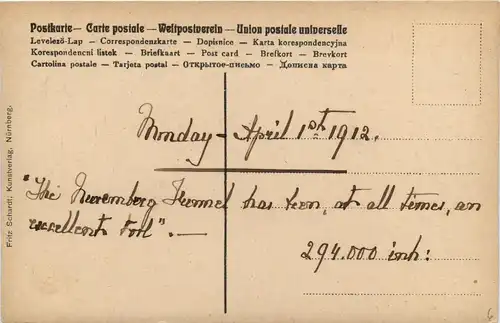 Postkarte — Carte postale — Weltpostverein — Union postale universelle
Levelező-Lap — Correspondenzkarte — Dopisnice — Karta korespondencyjna
Korespondencni listek — Briefkaart — Post card — Brefkort — Brevkort
Cartolina postale — Tarjeta postal — Открытое-письмо — Дописна карта
Monday – April 1st 1912.
"The Nuremberg Funnel has been, at all times, an
excellent tool". —
294.000 inh:
Fritz Schardt, Kunstverlag, Nürnberg.